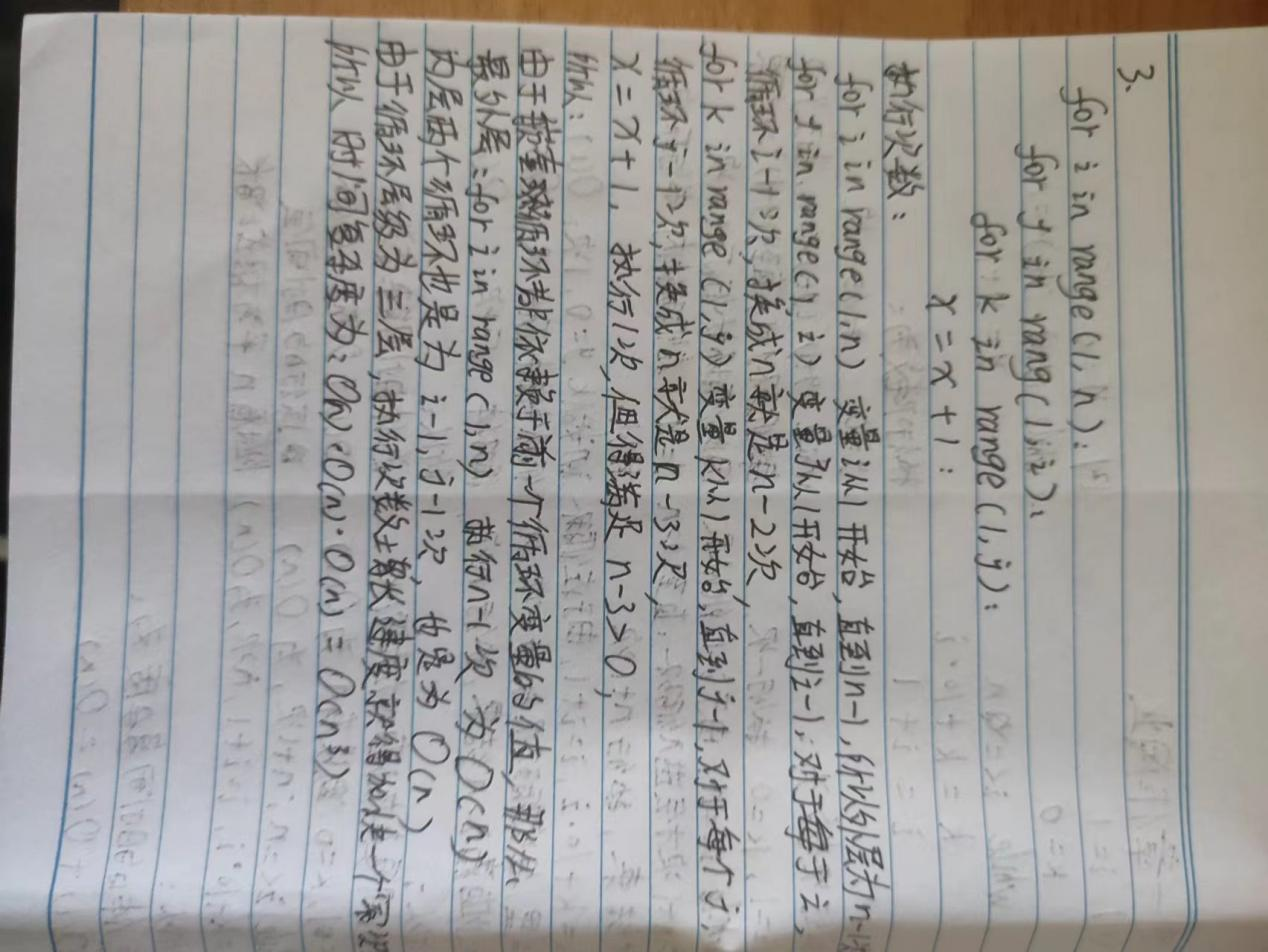 3.
for i in range(1, n):
for j in rang(1, i):
for k in range(1, j):
x = x + 1:
执行次数:
for i in range(1, n) 变量i从1开始, 直到n-1, 所以外层为n-1次
for j in range(1, i) 变量j从1开始, 直到i-1, 对于每于i,
循环i-1次, 换成n就是n-2次
for k in range (1, j) 变量k从1开始, 直到j-1, 对于每个j,
循环j-1次, 换成n就是n-3次,
x = x + 1, 执行1次, 但得满足 n-3>0,
所以:
由于嵌套循环依赖于前一个循环变量的值, 那么从
最外层:for i in range (1, n) 执行n-1次 为O(n)
内层两个循环也是为 i-1, j-1次, 也是为O(n)
由于循环层级为三层, 执行次数增长速度就得加快一个
所以 时间复杂度为: O(n)·O(n)·O(n) = O(n³)